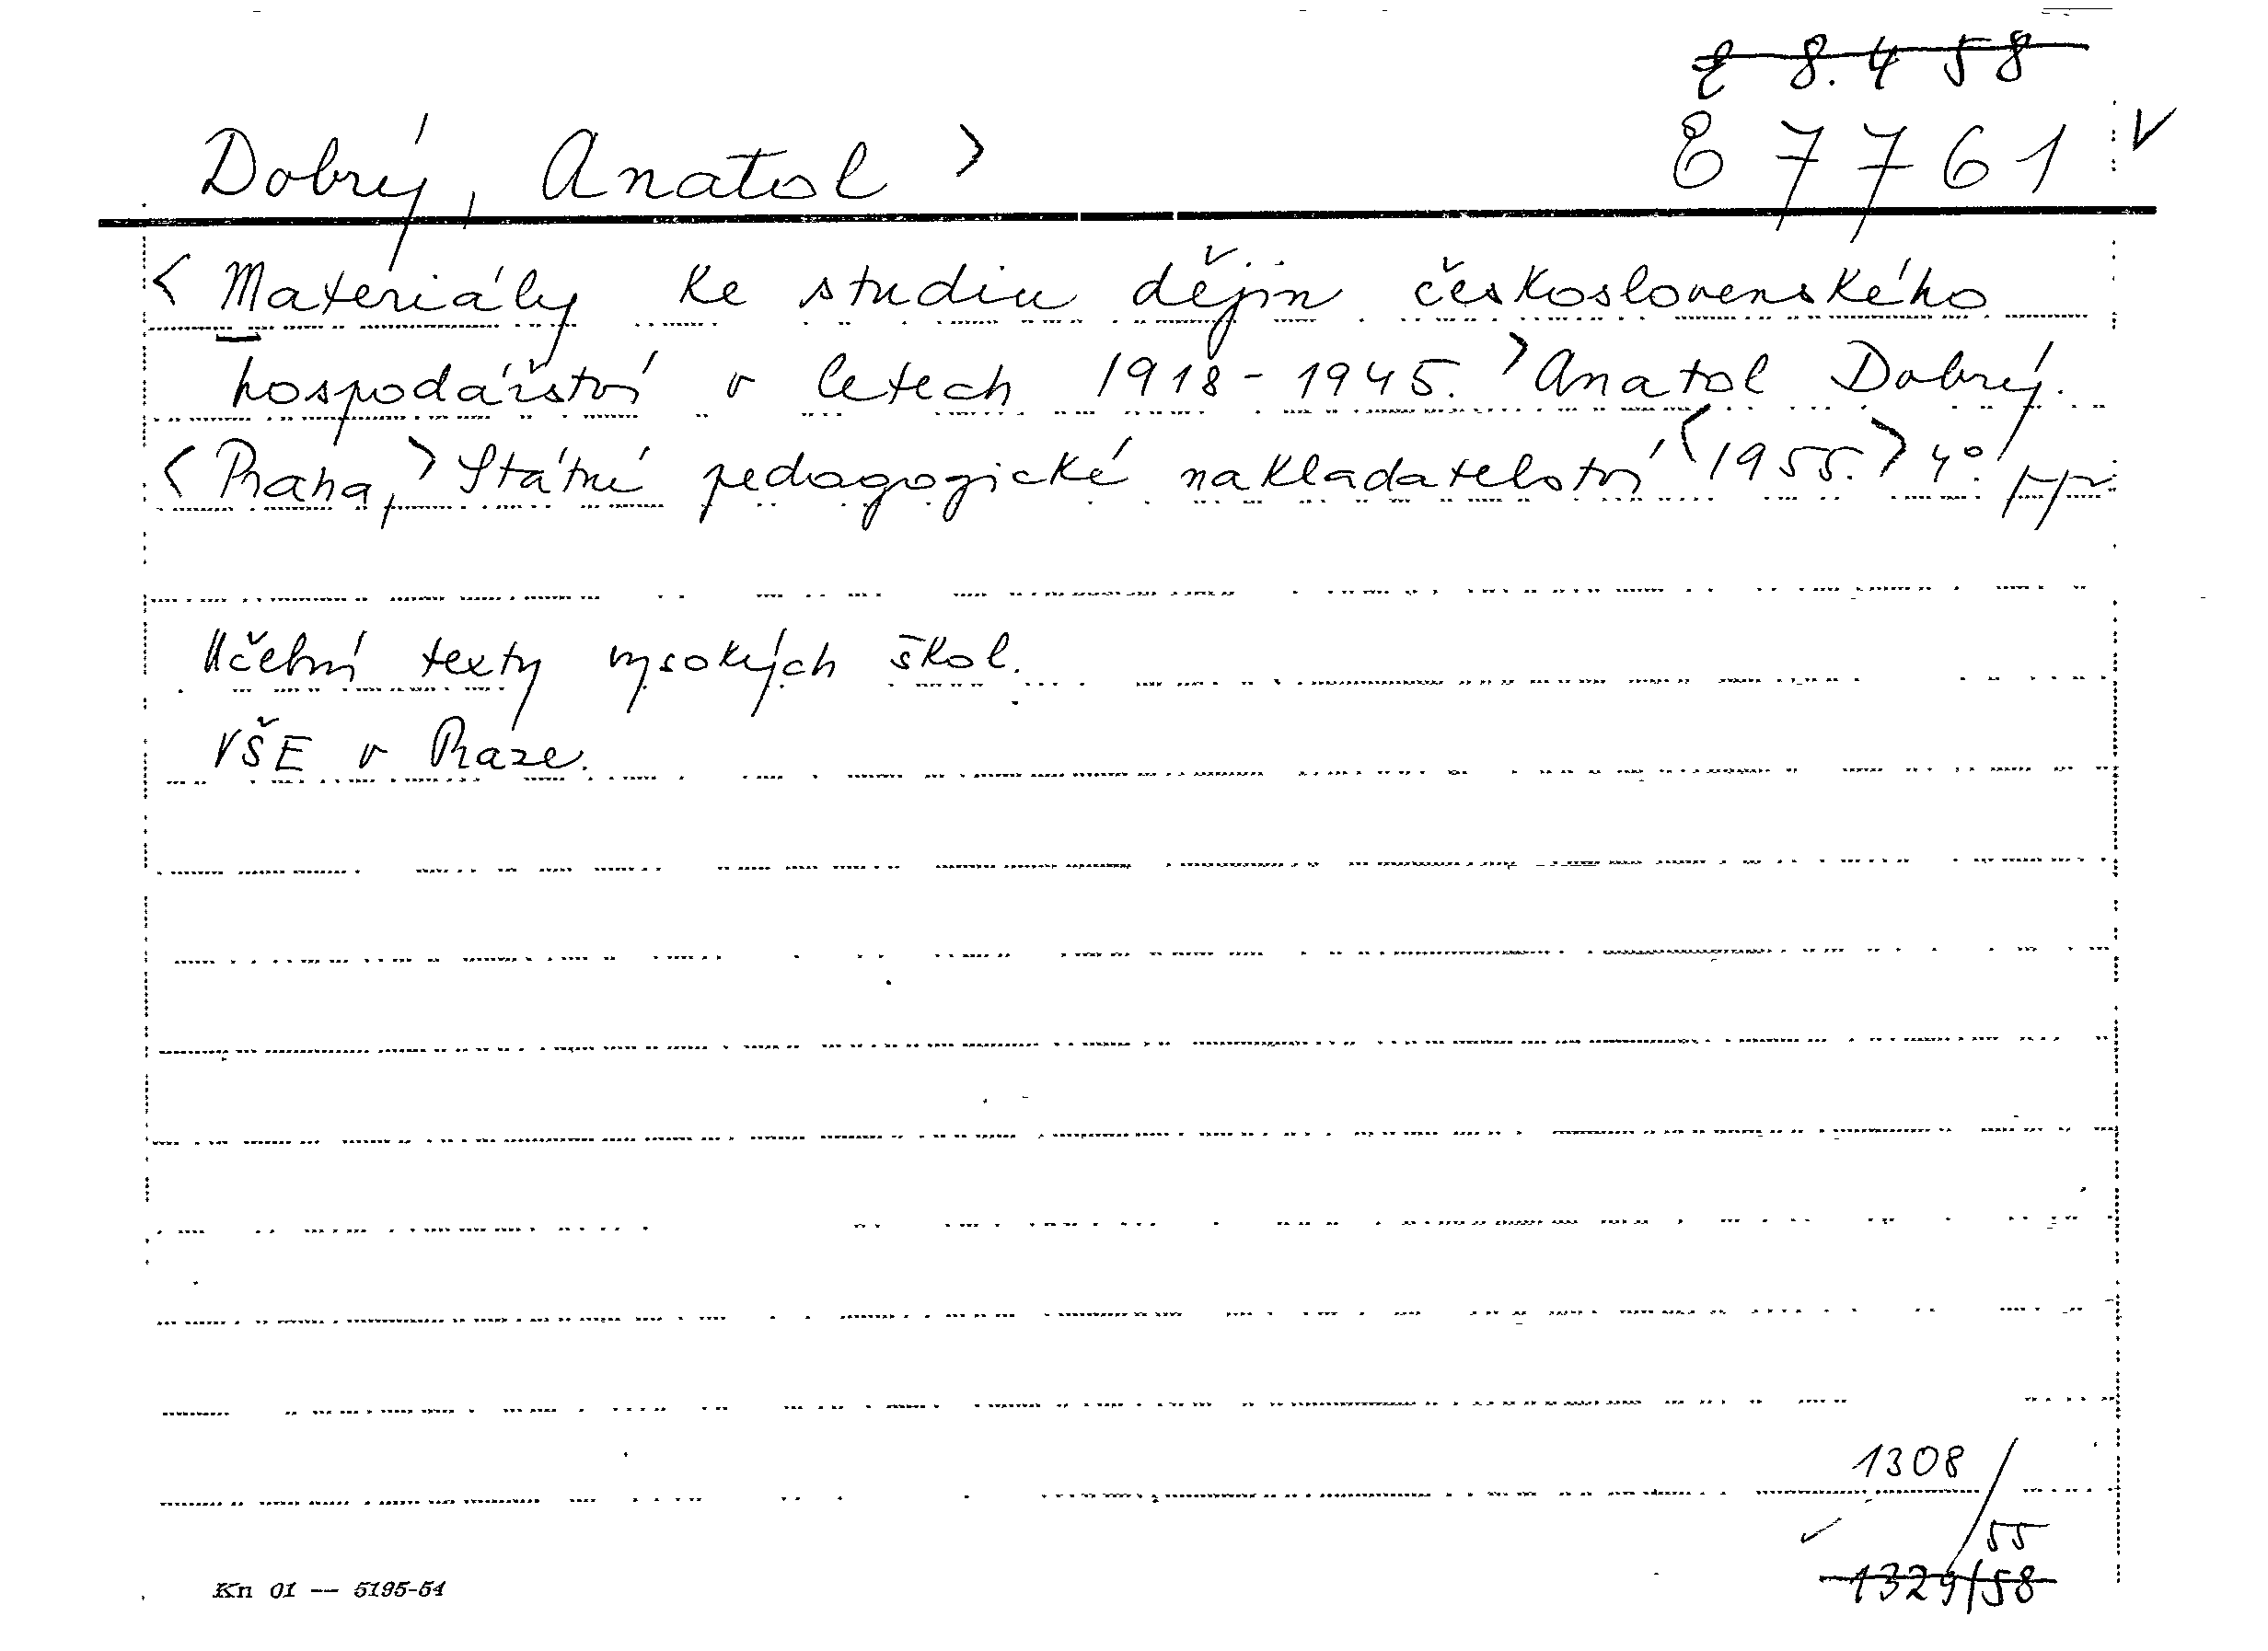 E 8.458
Dobrý, Anatol > E 7761 √
< Materiály ke studiu dějin československého
hospodářství v letech 1918-1945. > Anatol Dobrý.
< Praha, > Státní pedagogické nakladatelství < 1955. > 4°.
Učební texty vysokých škol.
VŠE v Praze.
1308/55
1329/58
Kn 01 — 5195-54